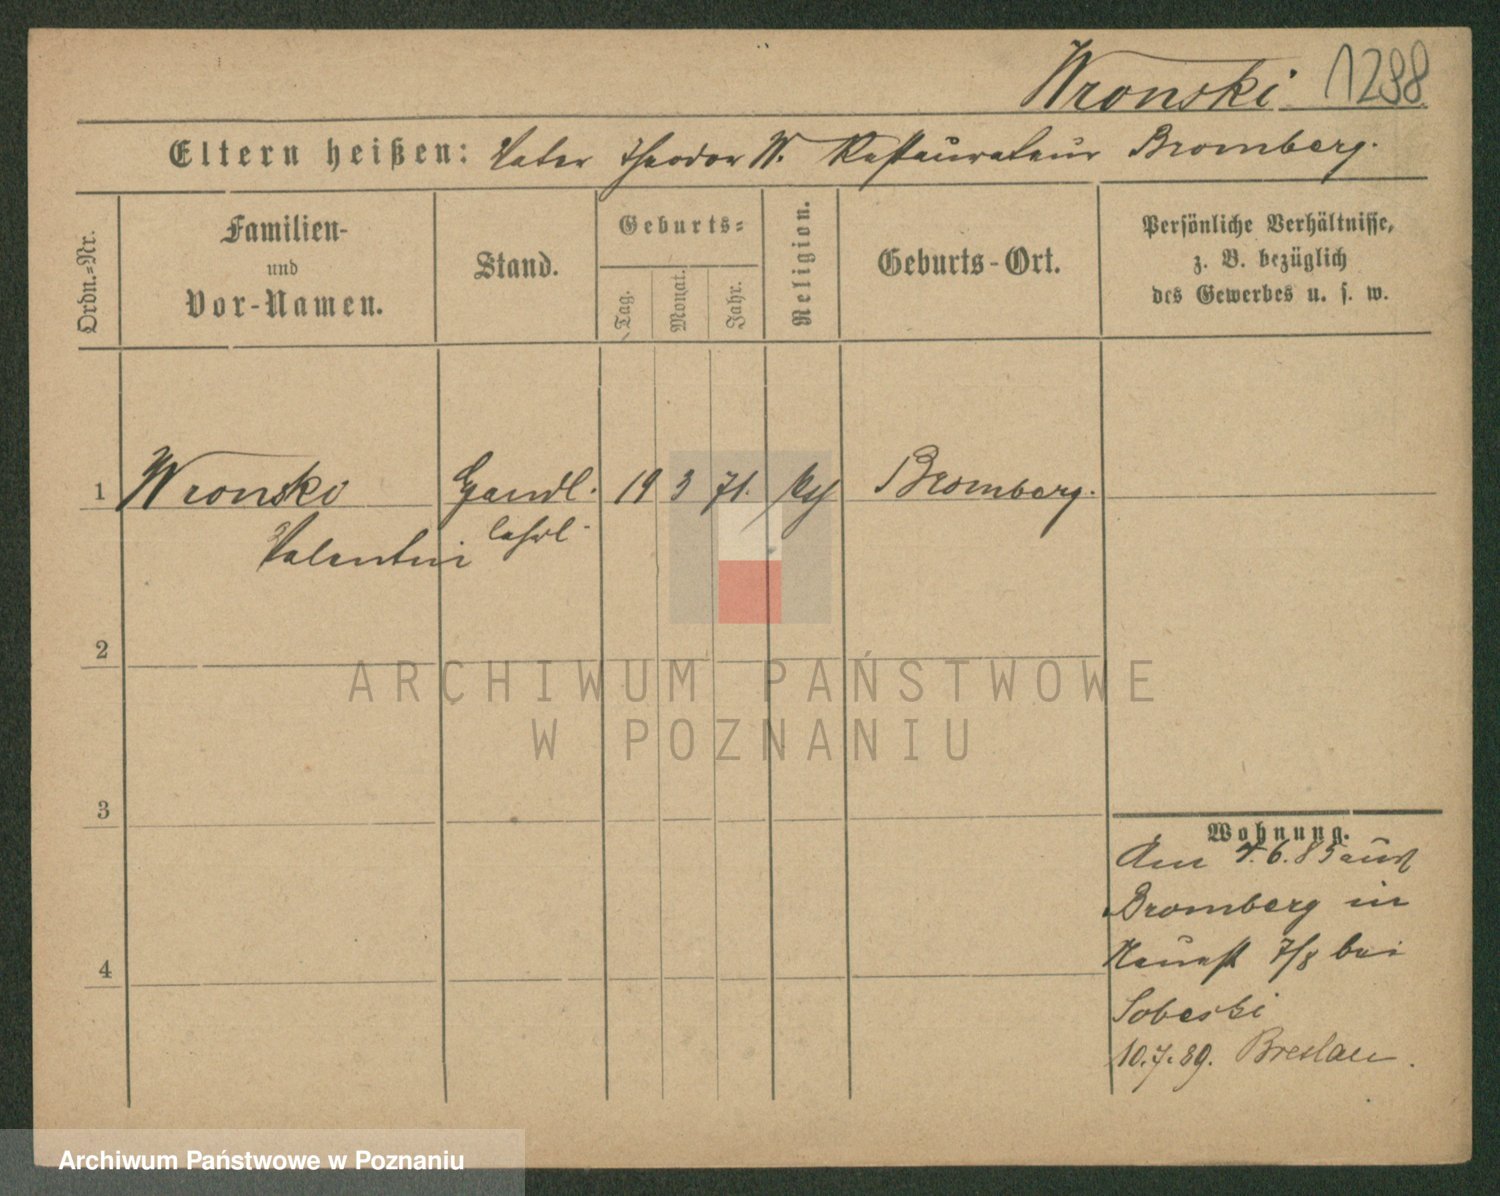 Wronski 1298
Eltern heißen: Vater Theodor W. Restaurateur Bromberg.
Ordn.-Nr.
Familien-
und
Vor-Namen.
Stand.
Geburts-
Tag.
Monat.
Jahr.
Religion.
Geburts-Ort.
Persönliche Verhältnisse,
z. B. bezüglich
des Gewerbes u. s. w.
1 Wronski Handl. 19 3 71. Bromberg.
Valentin lehrl.
2
3
4
ARCHIWUM PAŃSTWOWE
W POZNANIU
Wohnung.
Am 4.6.85 aus
Bromberg in
7/8 bei
Sobeski
10.7.89. Breslau.
Archiwum Państwowe w Poznaniu